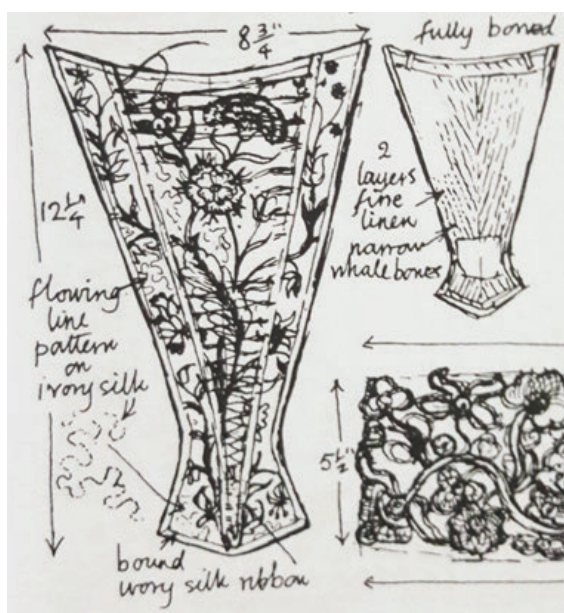 8 3/4"
fully boned
12 1/4"
2
layers
fine
linen
narrow
whale bones
flowing
line
pattern
on
ivory silk
5 1/2"
bound
ivory silk ribbon